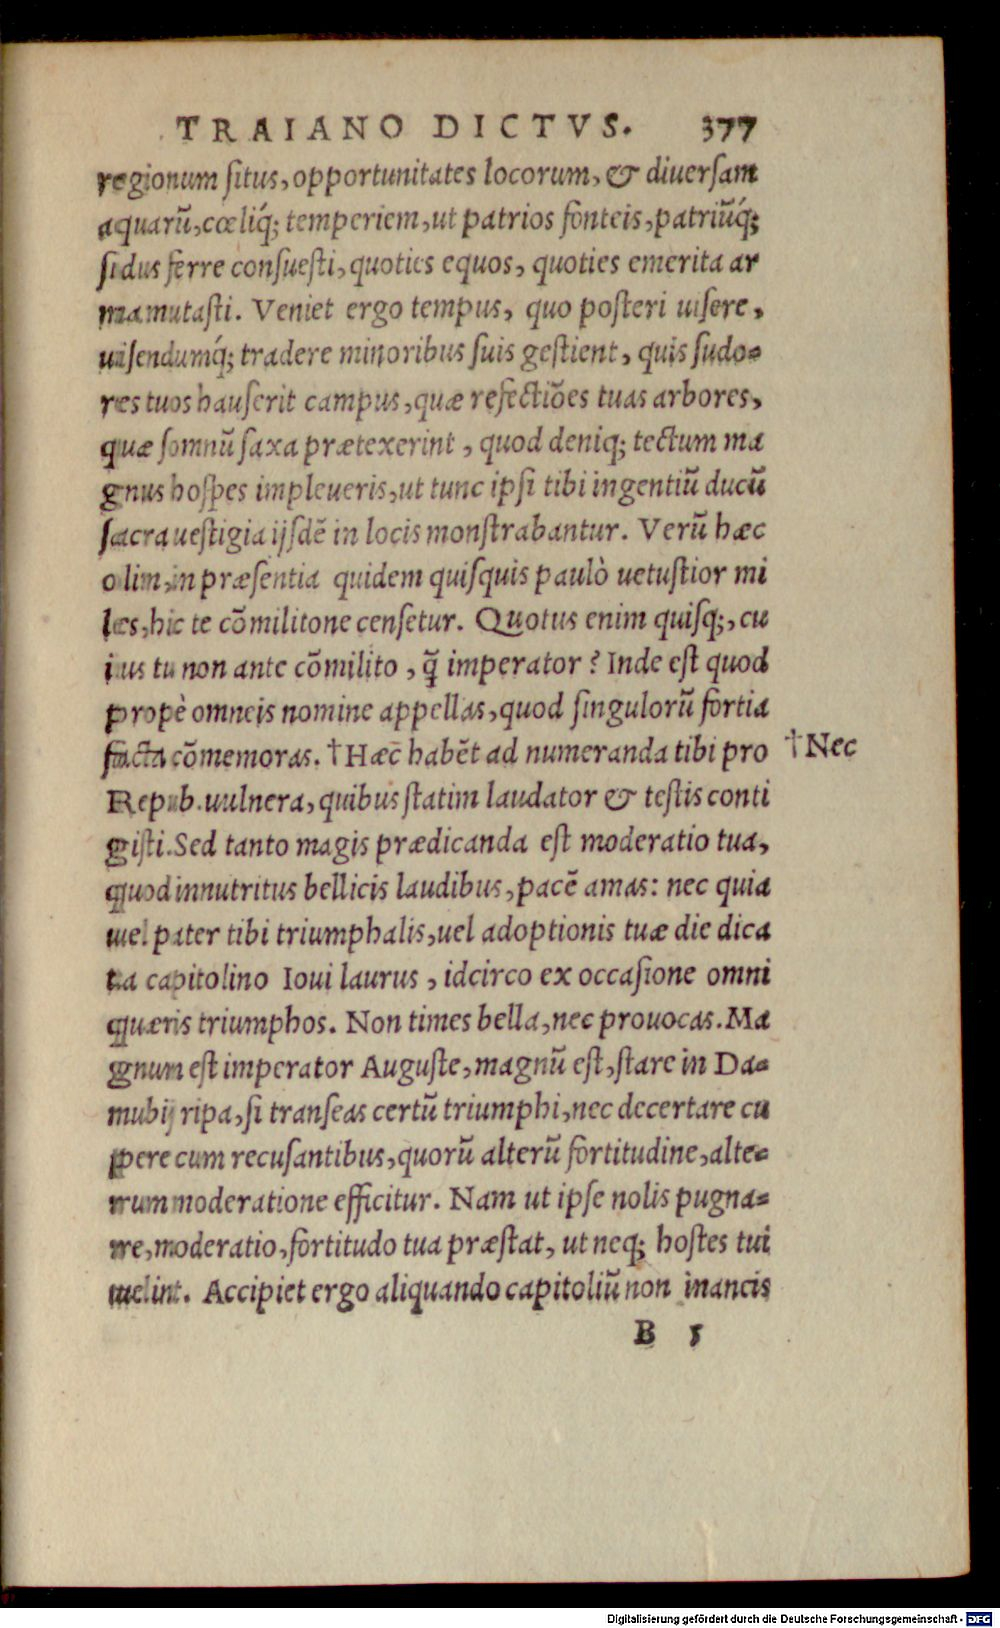 TRAIANO DICTVS. 377
regionum ſitus, opportunitates locorum, & diuerſam
aquarū, cœliq́; temperiem, ut patrios fonteis, patriūq́;
ſidus ferre conſueſti, quoties equos, quoties emerita ar
ma mutaſti. Veniet ergo tempus, quo poſteri uiſere,
uiſendumq́; tradere minoribus ſuis geſtient, quis ſudo=
res tuos hauſerit campus, quæ refectiōes tuas arbores,
quæ ſomnū ſaxa prætexerint, quod deniq; tectum ma
gnus hoſpes impleueris, ut tunc ipſi tibi ingentiū ducū
ſacra ueſtigia ijſdē in locis monſtrabantur. Verū hæc
olim, in præſentia quidem quiſquis paulò uetuſtior mi
les, hic te cōmilitone cenſetur. Quotus enim quiſq;, cu
ius tu non ante cōmilito, q̄ imperator? Inde eſt quod
propè omneis nomine appellas, quod ſingulorū fortia
facta cōmemoras. †Hæc habēt ad numeranda tibi pro
Repub. uulnera, quibus ſtatim laudator & teſtis conti
giſti. Sed tanto magis prædicanda eſt moderatio tua,
quod innutritus bellicis laudibus, pacē amas: nec quia
uel pater tibi triumphalis, uel adoptionis tuæ die dica
ta capitolino Ioui laurus, idcirco ex occaſione omni
quæris triumphos. Non times bella, nec prouocas. Ma
gnum eſt imperator Auguſte, magnū eſt, ſtare in Da=
nubij ripa, ſi tranſeas certū triumphi, nec decertare cu
pere cum recuſantibus, quorū alterū fortitudine, alte=
rum moderatione efficitur. Nam ut ipſe nolis pugna=
re, moderatio, fortitudo tua præſtat, ut neq; hoſtes tui
uelint. Accipiet ergo aliquando capitoliū non inaneis
†Nec
B 5
Digitalisierung gefördert durch die Deutsche Forschungsgemeinschaft - DFG